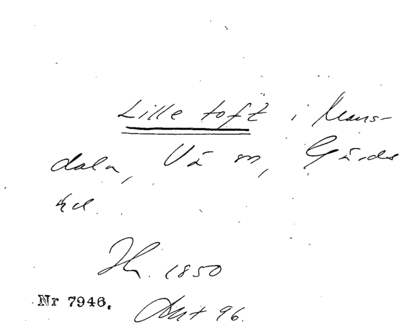 Lille toft i Mans-
dala, Vå sn, Gärds
hd.
Hn. 1850
Nr 7946.
Ant 96.